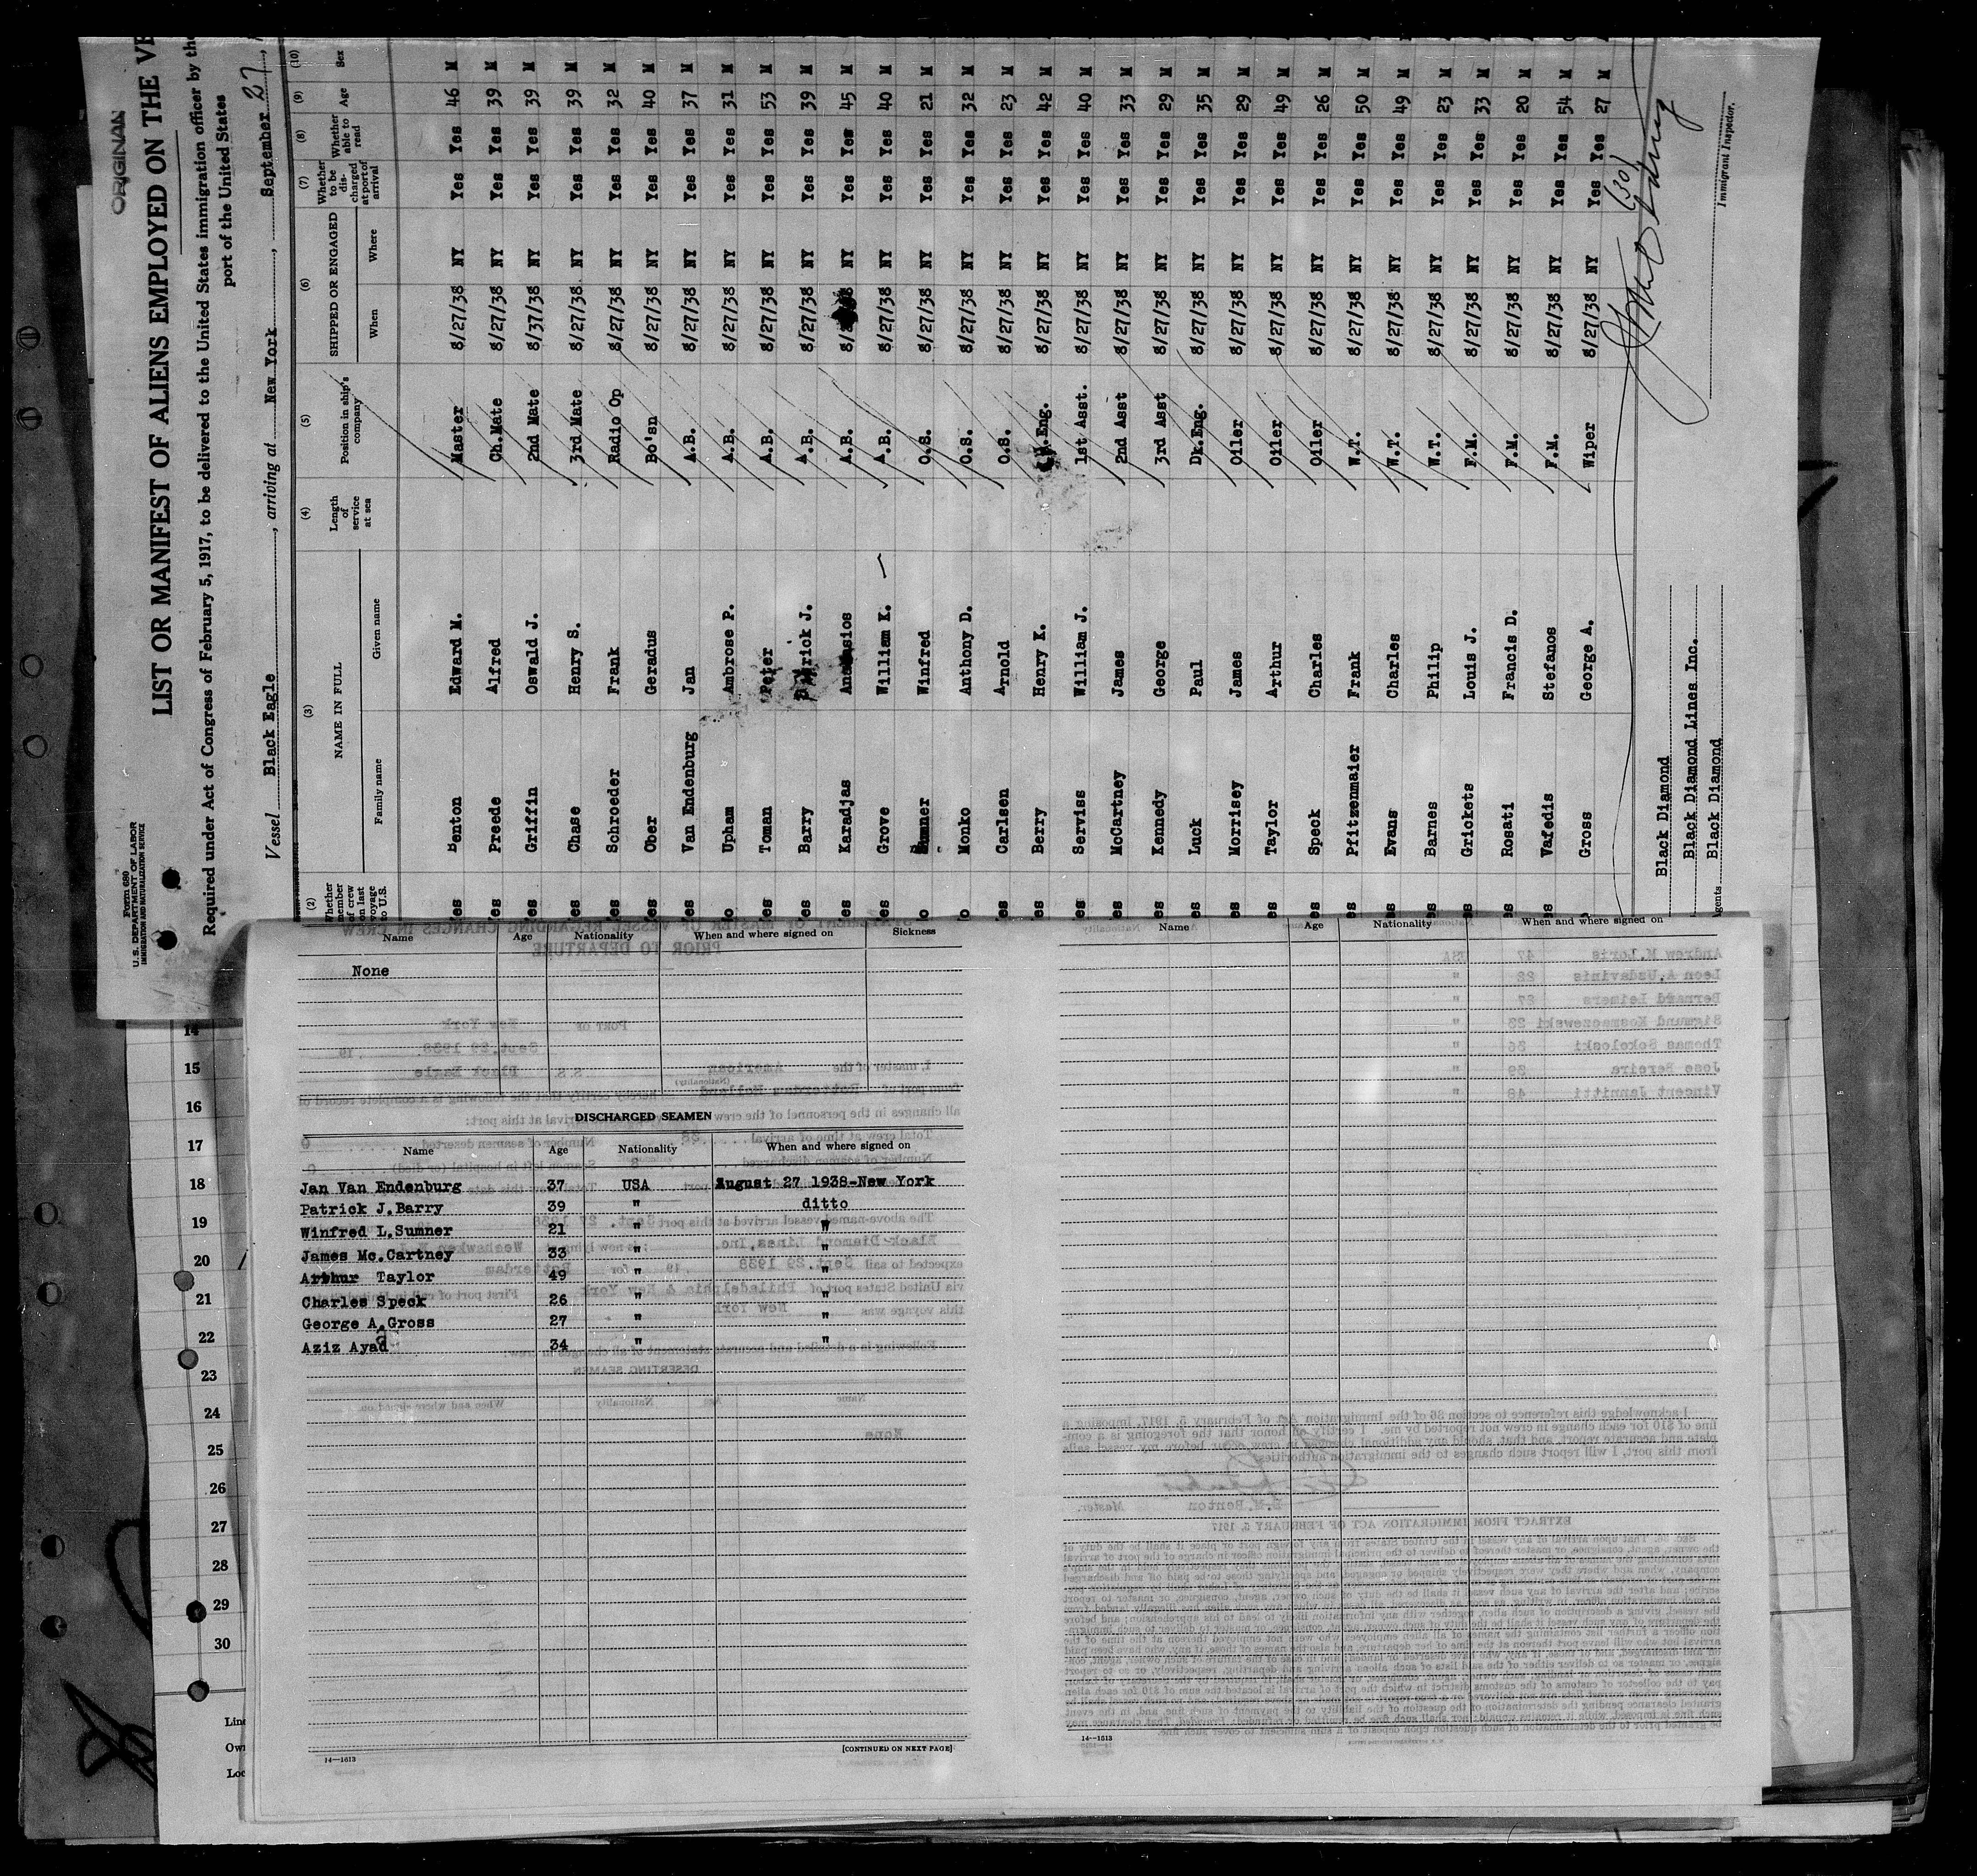 ORIGINAL
Form 680
U.S. DEPARTMENT OF LABOR
IMMIGRATION AND NATURALIZATION SERVICE
LIST OR MANIFEST OF ALIENS EMPLOYED ON THE VE
Required under Act of Congress of February 5, 1917, to be delivered to the United States immigration officer by the
port of the United States
Vessel Black Eagle, arriving at New York, September 27,
(2) (3) (4) (5) (6) (7) (8) (9) (10)
Whether member of crew on last voyage to U.S. NAME IN FULL Length of service at sea Position in ship's company SHIPPED OR ENGAGED Whether to be discharged at port of arrival Whether able to read Age Sex
Family name Given name When Where
es Benton Edward M. Master 8/27/38 NY Yes Yes 46 M
es Preede Alfred Ch.Mate 8/27/38 NY Yes Yes 39 M
es Griffin Oswald J. 2nd Mate 8/37/38 NY Yes Yes 39 M
es Chase Henry S. 3rd Mate 8/27/38 NY Yes Yes 39 M
es Schroeder Frank Radio Op 8/27/38 NY Yes Yes 32 M
es Ober Geradus Bo'sn 8/27/38 NY Yes Yes 40 M
es Van Endenburg Jan A.B. 8/27/38 NY Yes Yes 37 M
o Upham Ambrose P. A.B. 8/27/38 NY Yes Yes 31 M
es Toman Peter A.B. 8/27/38 NY Yes Yes 53 M
es Barry Patrick J. A.B. 8/27/38 NY Yes Yes 39 M
es Karadjas Anastasios A.B. NY Yes Yes 45 M
es Grove William K. A.B. 8/27/38 NY Yes Yes 40 M
o Sumner Winfred O.S. 8/27/38 NY Yes Yes 21 M
o Monko Anthony D. O.S. 8/27/38 NY Yes Yes 32 M
es Carlsen Arnold O.S. 8/27/38 NY Yes Yes 23 M
es Berry Henry K. Eng. 8/27/38 NY Yes Yes 42 M
es Serviss William J. 1st Asst. 8/27/38 NY Yes Yes 40 M
es McCartney James 2nd Asst 8/27/38 NY Yes Yes 33 M
es Kennedy George 3rd Asst 8/27/38 NY Yes Yes 29 M
es Luck Paul Dk.Eng. 8/27/38 NY Yes Yes 35 M
es Morrisey James Oiler 8/27/38 NY Yes Yes 29 M
es Taylor Arthur Oiler 8/27/38 NY Yes Yes 49 M
es Speck Charles Oiler 8/27/38 NY Yes Yes 26 M
es Pfitzenmaier Frank W.T. 8/27/38 NY Yes Yes 50 M
es Evans Charles W.T. 8/27/38 NY Yes Yes 49 M
es Barnes Philip W.T. 8/27/38 NY Yes Yes 23 M
es Grickets Louis J. F.M. 8/27/38 NY Yes Yes 33 M
es Rosati Francis D. F.M. 8/27/38 NY Yes Yes 20 M
es Vafedis Stefanos F.M. 8/27/38 NY Yes Yes 54 M
Gross George A. Wiper 8/27/38 NY Yes Yes 27 M
(30)
Black Diamond
Black Diamond Lines Inc.
gents Black Diamond
Immigrant Inspector.
Name Age Nationality When and where signed on Sickness
None
DISCHARGED SEAMEN
Name Age Nationality When and where signed on
Jan Van Endenburg 37 USA August 27 1938-New York
Patrick J.Barry 39 " ditto
Winfred L.Sumner 21 " "
James Mc.Cartney 33 " "
Arthur Taylor 49 " "
Charles Speck 26 " "
George A.Gross 27 " "
Aziz Ayad 34 " "
14—1613
[CONTINUED ON NEXT PAGE]
Name Age Nationality When and where signed on
14—1613
14
15
16
17
18
19
20
21
22
23
24
25
26
27
28
29
30
Line
Own
Loc